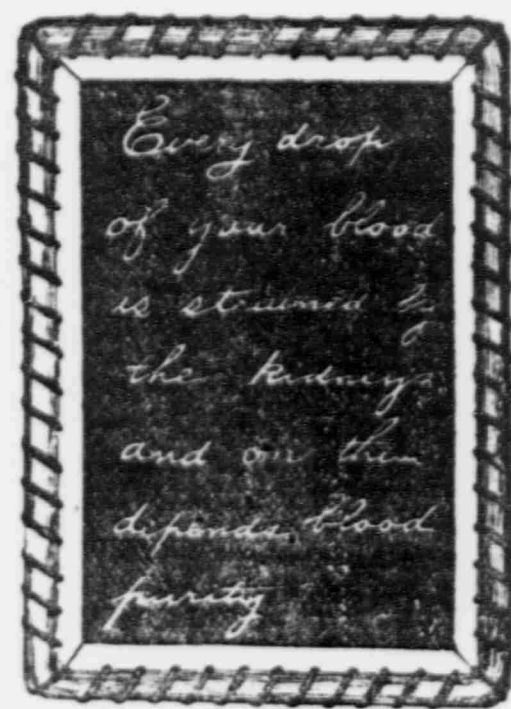 Every drop
of your blood
is strained by
the kidneys
and on them
depends blood
purity